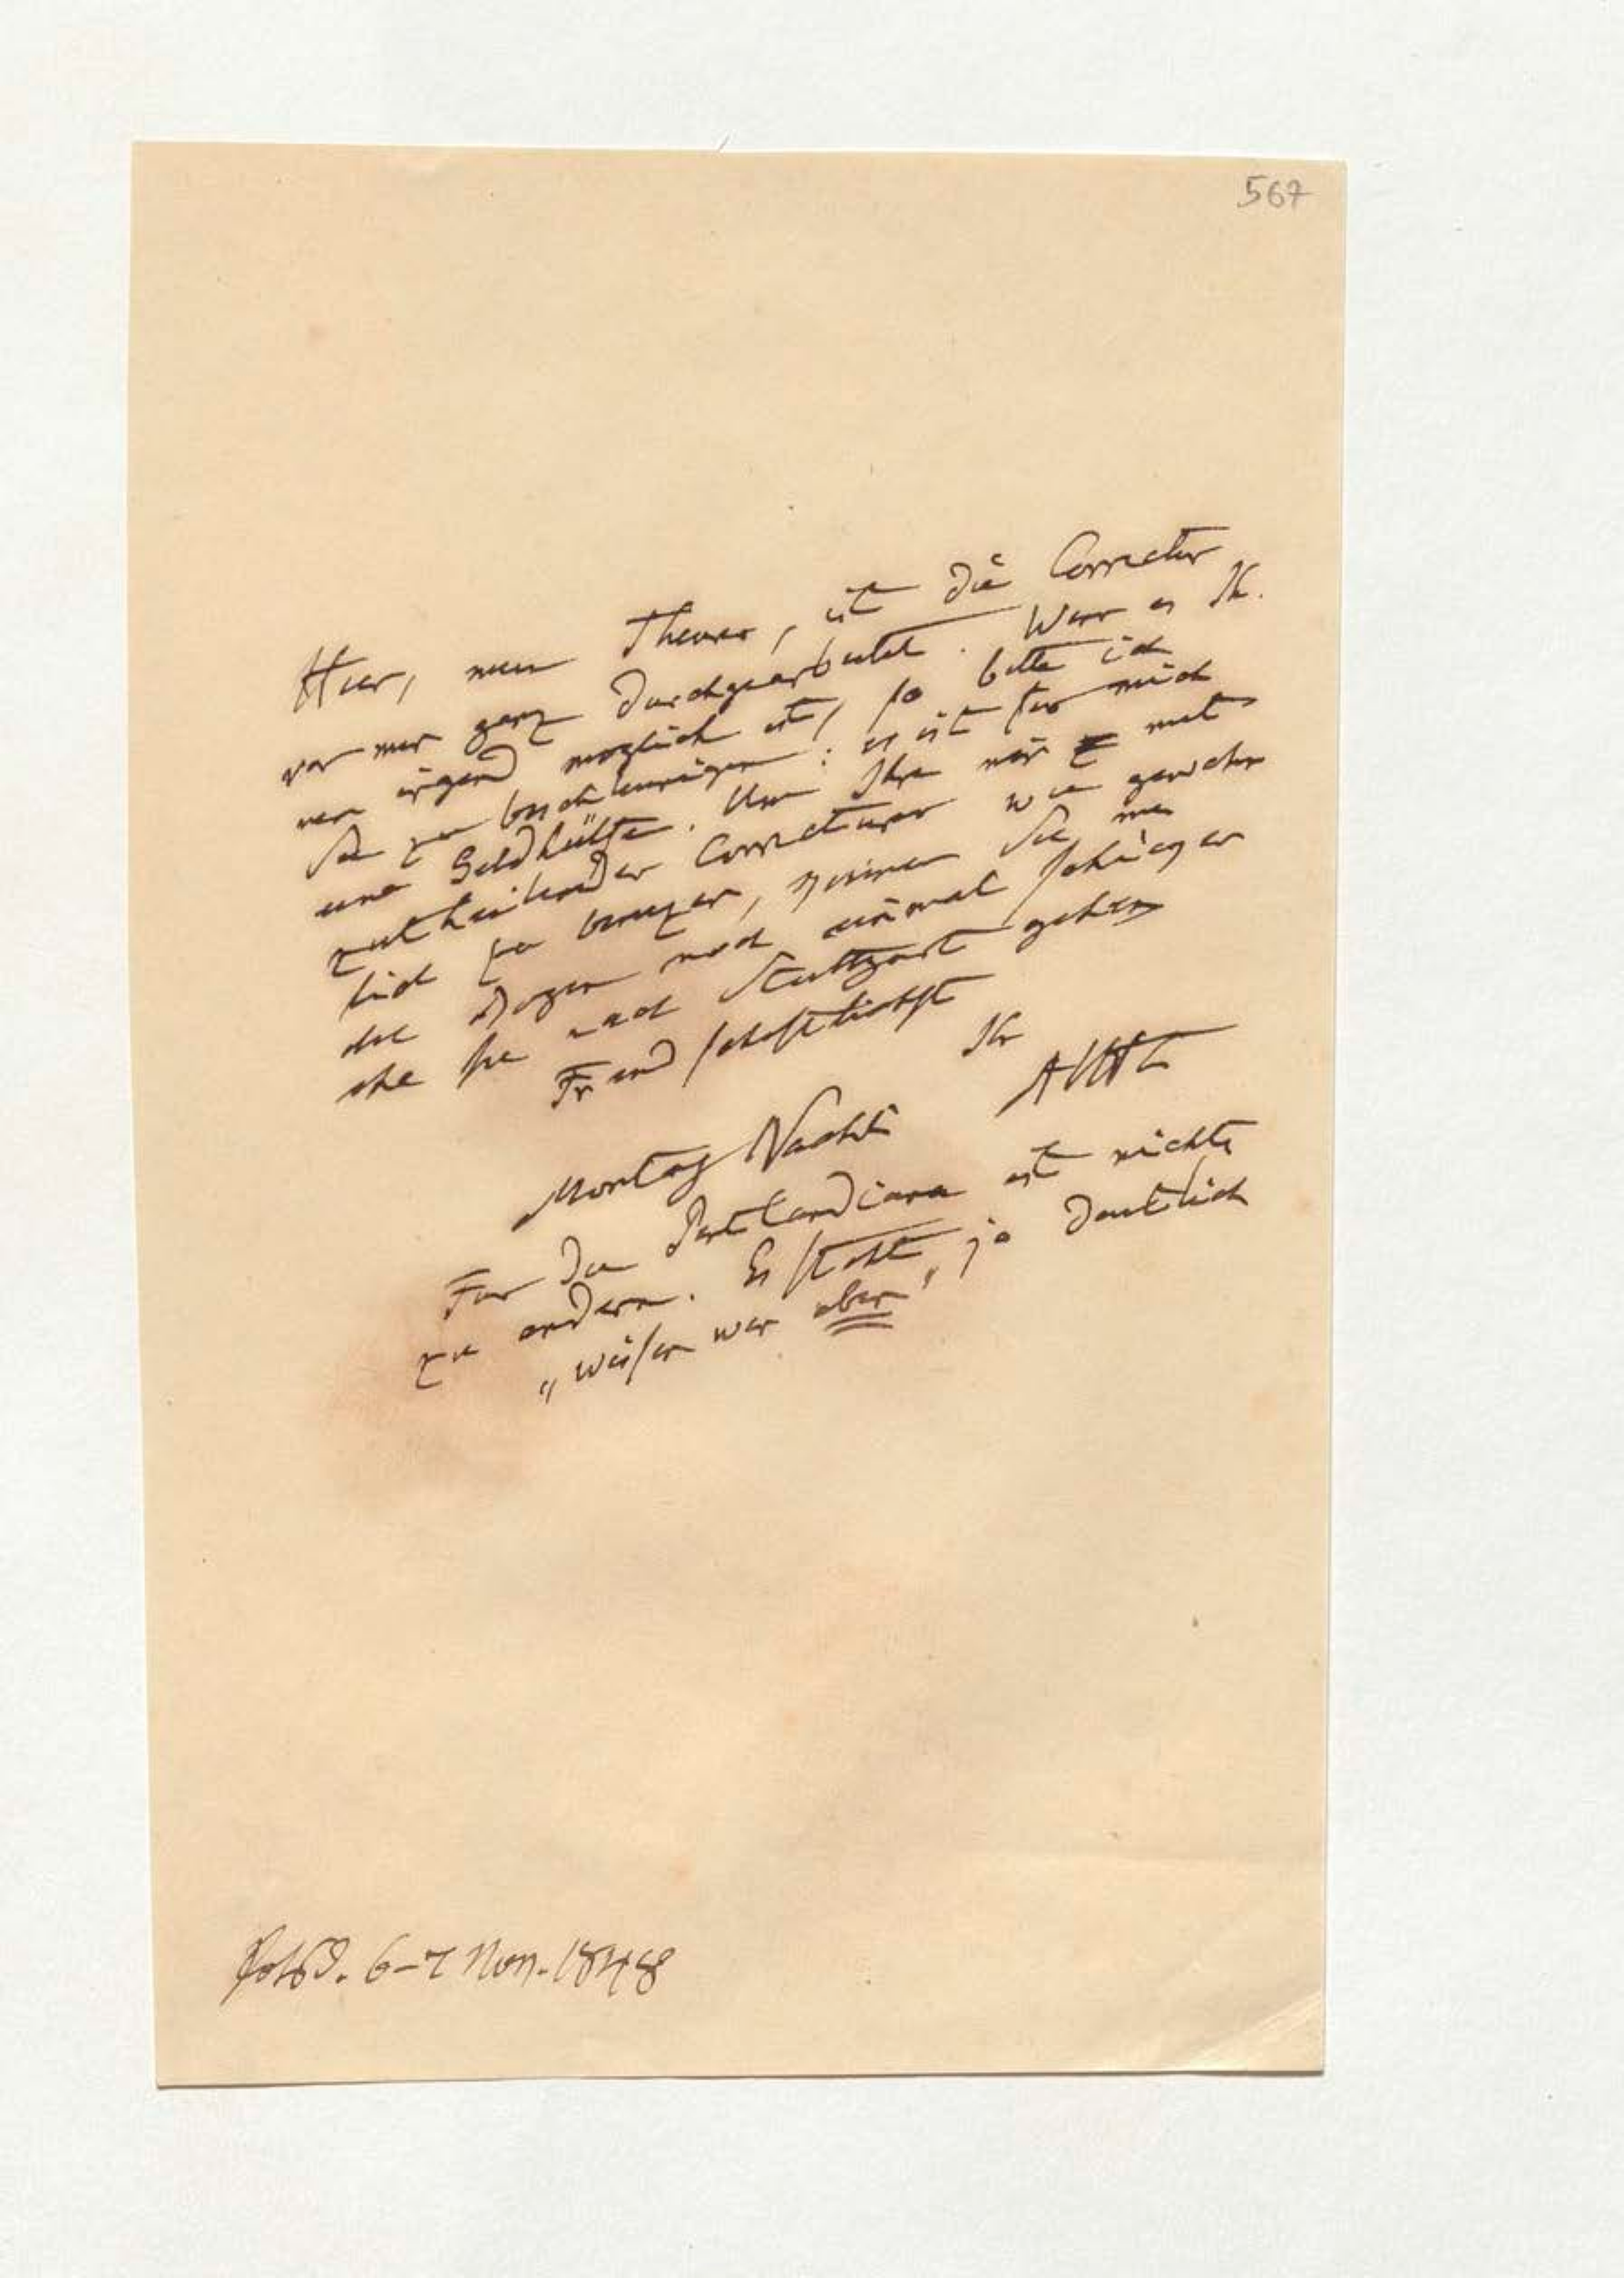 567
Hier, mein Theurer, ist die Correctur
von mir ganz durchgearbeitet. Wenn es Ih-
nen irgend moglich ist, so bitte ich
Sie zu beschleunigen: es ist fur mich
eine Geldhülfe. Um Ihre mir mit
zutheilenden Correcturen wie gewohn
lich zu benuzen, mussen Sie mir
die Bogen noch einmal schicken
ehe sie nach Stuttgart gehen
Freundschaftlichst
Ihr
AVHt
Montag Nacht
Fur die Pentlandiana ist nichts
zu andern. Es steht ja deutlich
„weisen wir aber"
Potsd. 6-7 Nov. 1848